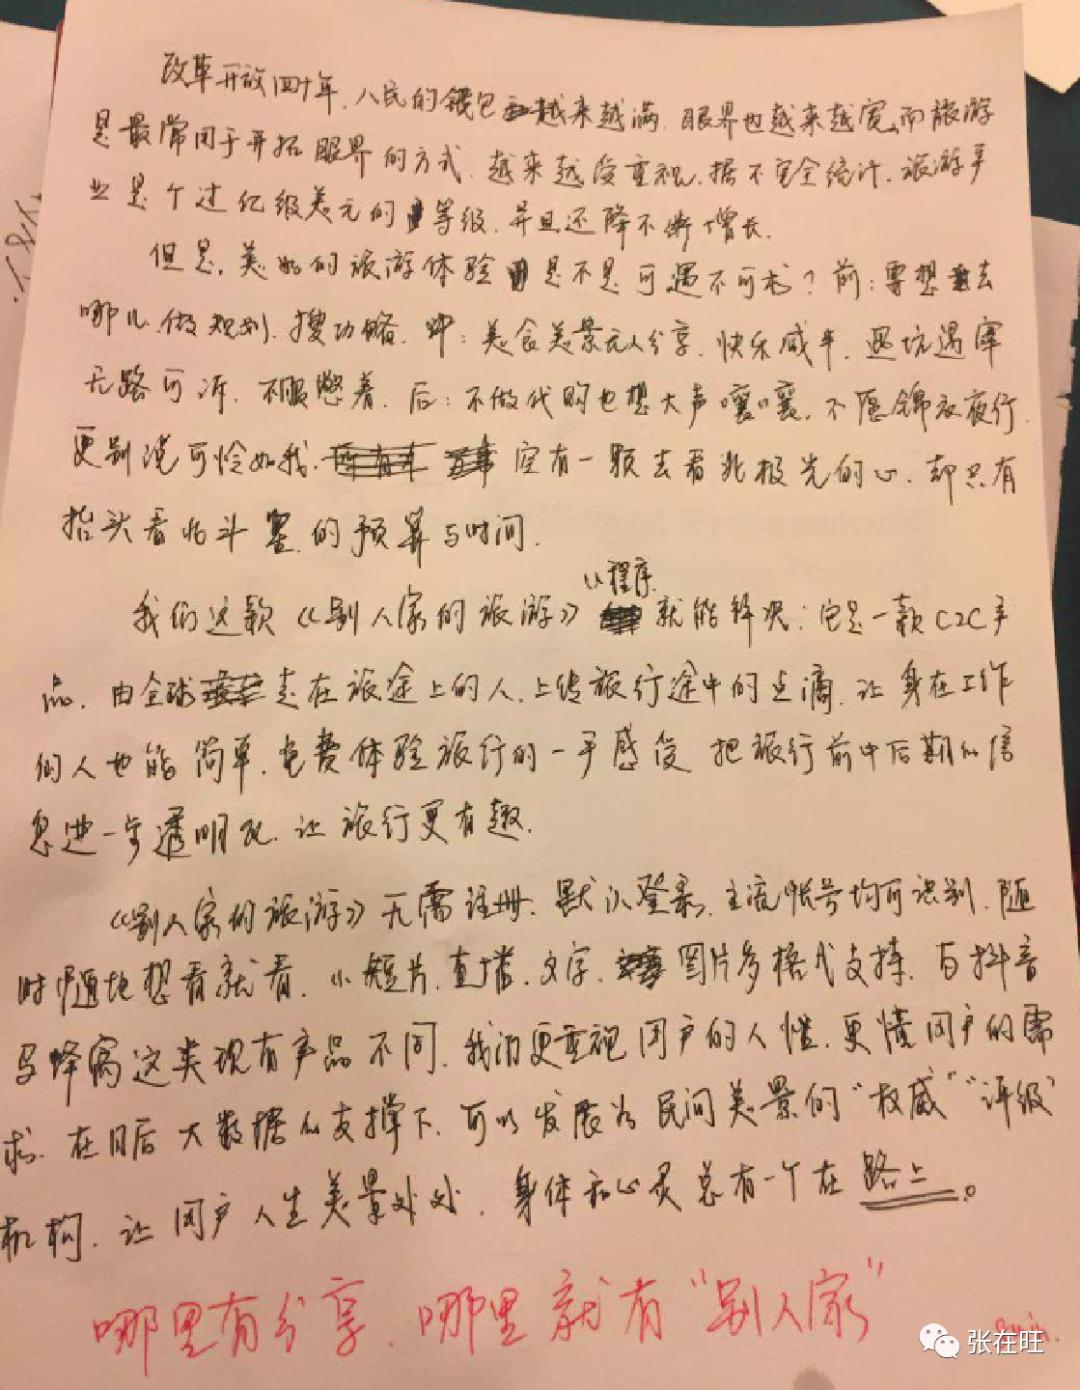 改革开放四十年,人民的钱包越来越满,眼界也越来越宽,而旅游
是最常用于开拓眼界的方式,越来越受重视,据不完全统计,旅游产
业是个过亿级美元的等级,并且还降不断增长.
但是,美好的旅游体验是不是可遇不可求?前:要想去
哪儿,做规划,搜功略,中:美食美景无人分享,快乐减半,遇坑遇宰
无路可诉,不服憋着,后:不做代购也想大声嚷嚷,不愿锦衣夜行.
更别说可怜如我,空有一颗去看北极光的心,却只有
抬头看北斗星的预算与时间.
小程序
我们这款《别人家的旅游》就能解决:它是一款C2C产
品,由全球走在旅途上的人,上传旅行途中的点滴,让身在工作
的人也能简单,免费体验旅行的一手感受,把旅行前中后期的信
息进一步透明化,让旅行更有趣.
《别人家的旅游》无需注册,默认登录,主流帐号均可识别,随
时随地想看就看,小短片,直播,文字,图片多格式支持,与抖音
马蜂窝这类现有产品不同,我们更重视用户的人性,更懂用户的需
求,在日后大数据的支撑下,可以发展为民间美景的“权威”“评级”
机构,让用户人生美景处处,身体和心灵总有一个在路上。
哪里有分享,哪里就有“别人家”
张在旺